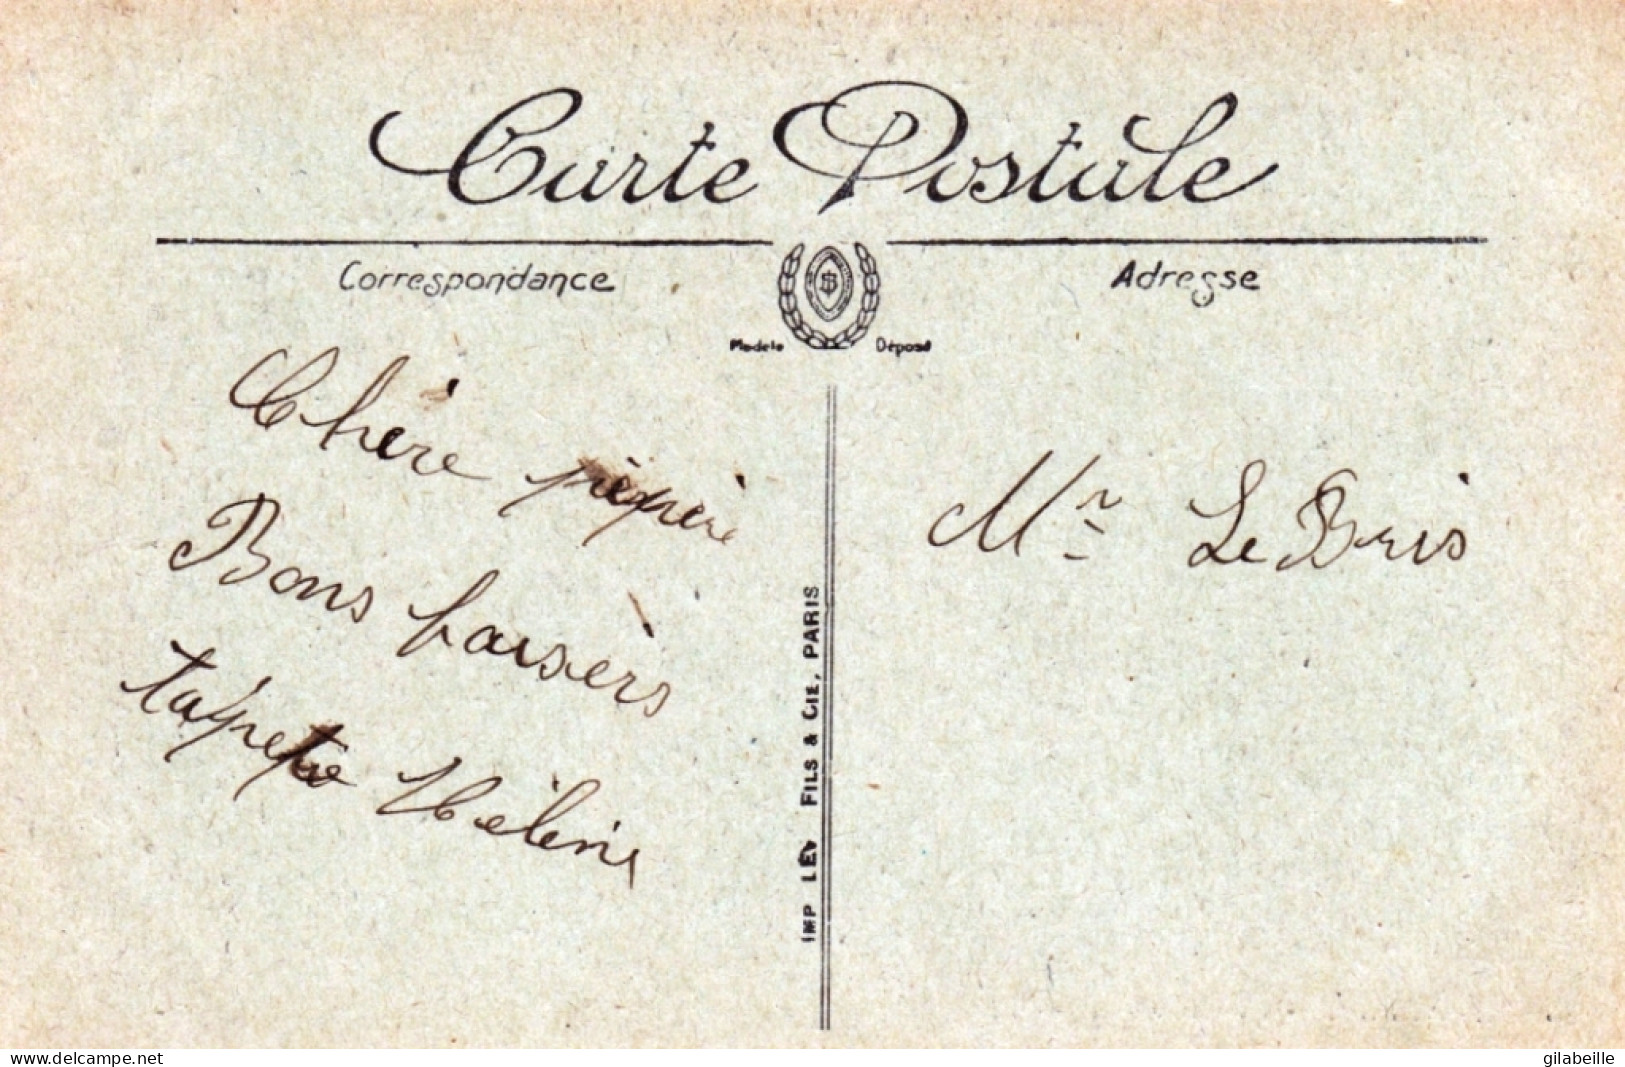 Carte Postale
Correspondance
Adresse
Modèle Déposé
Chère pépère
Bons baisèrs
ta petite Hélène
Mr Le Bris
IMP LÉVY FILS & CIE, PARIS
delcampe.net
gilabeille